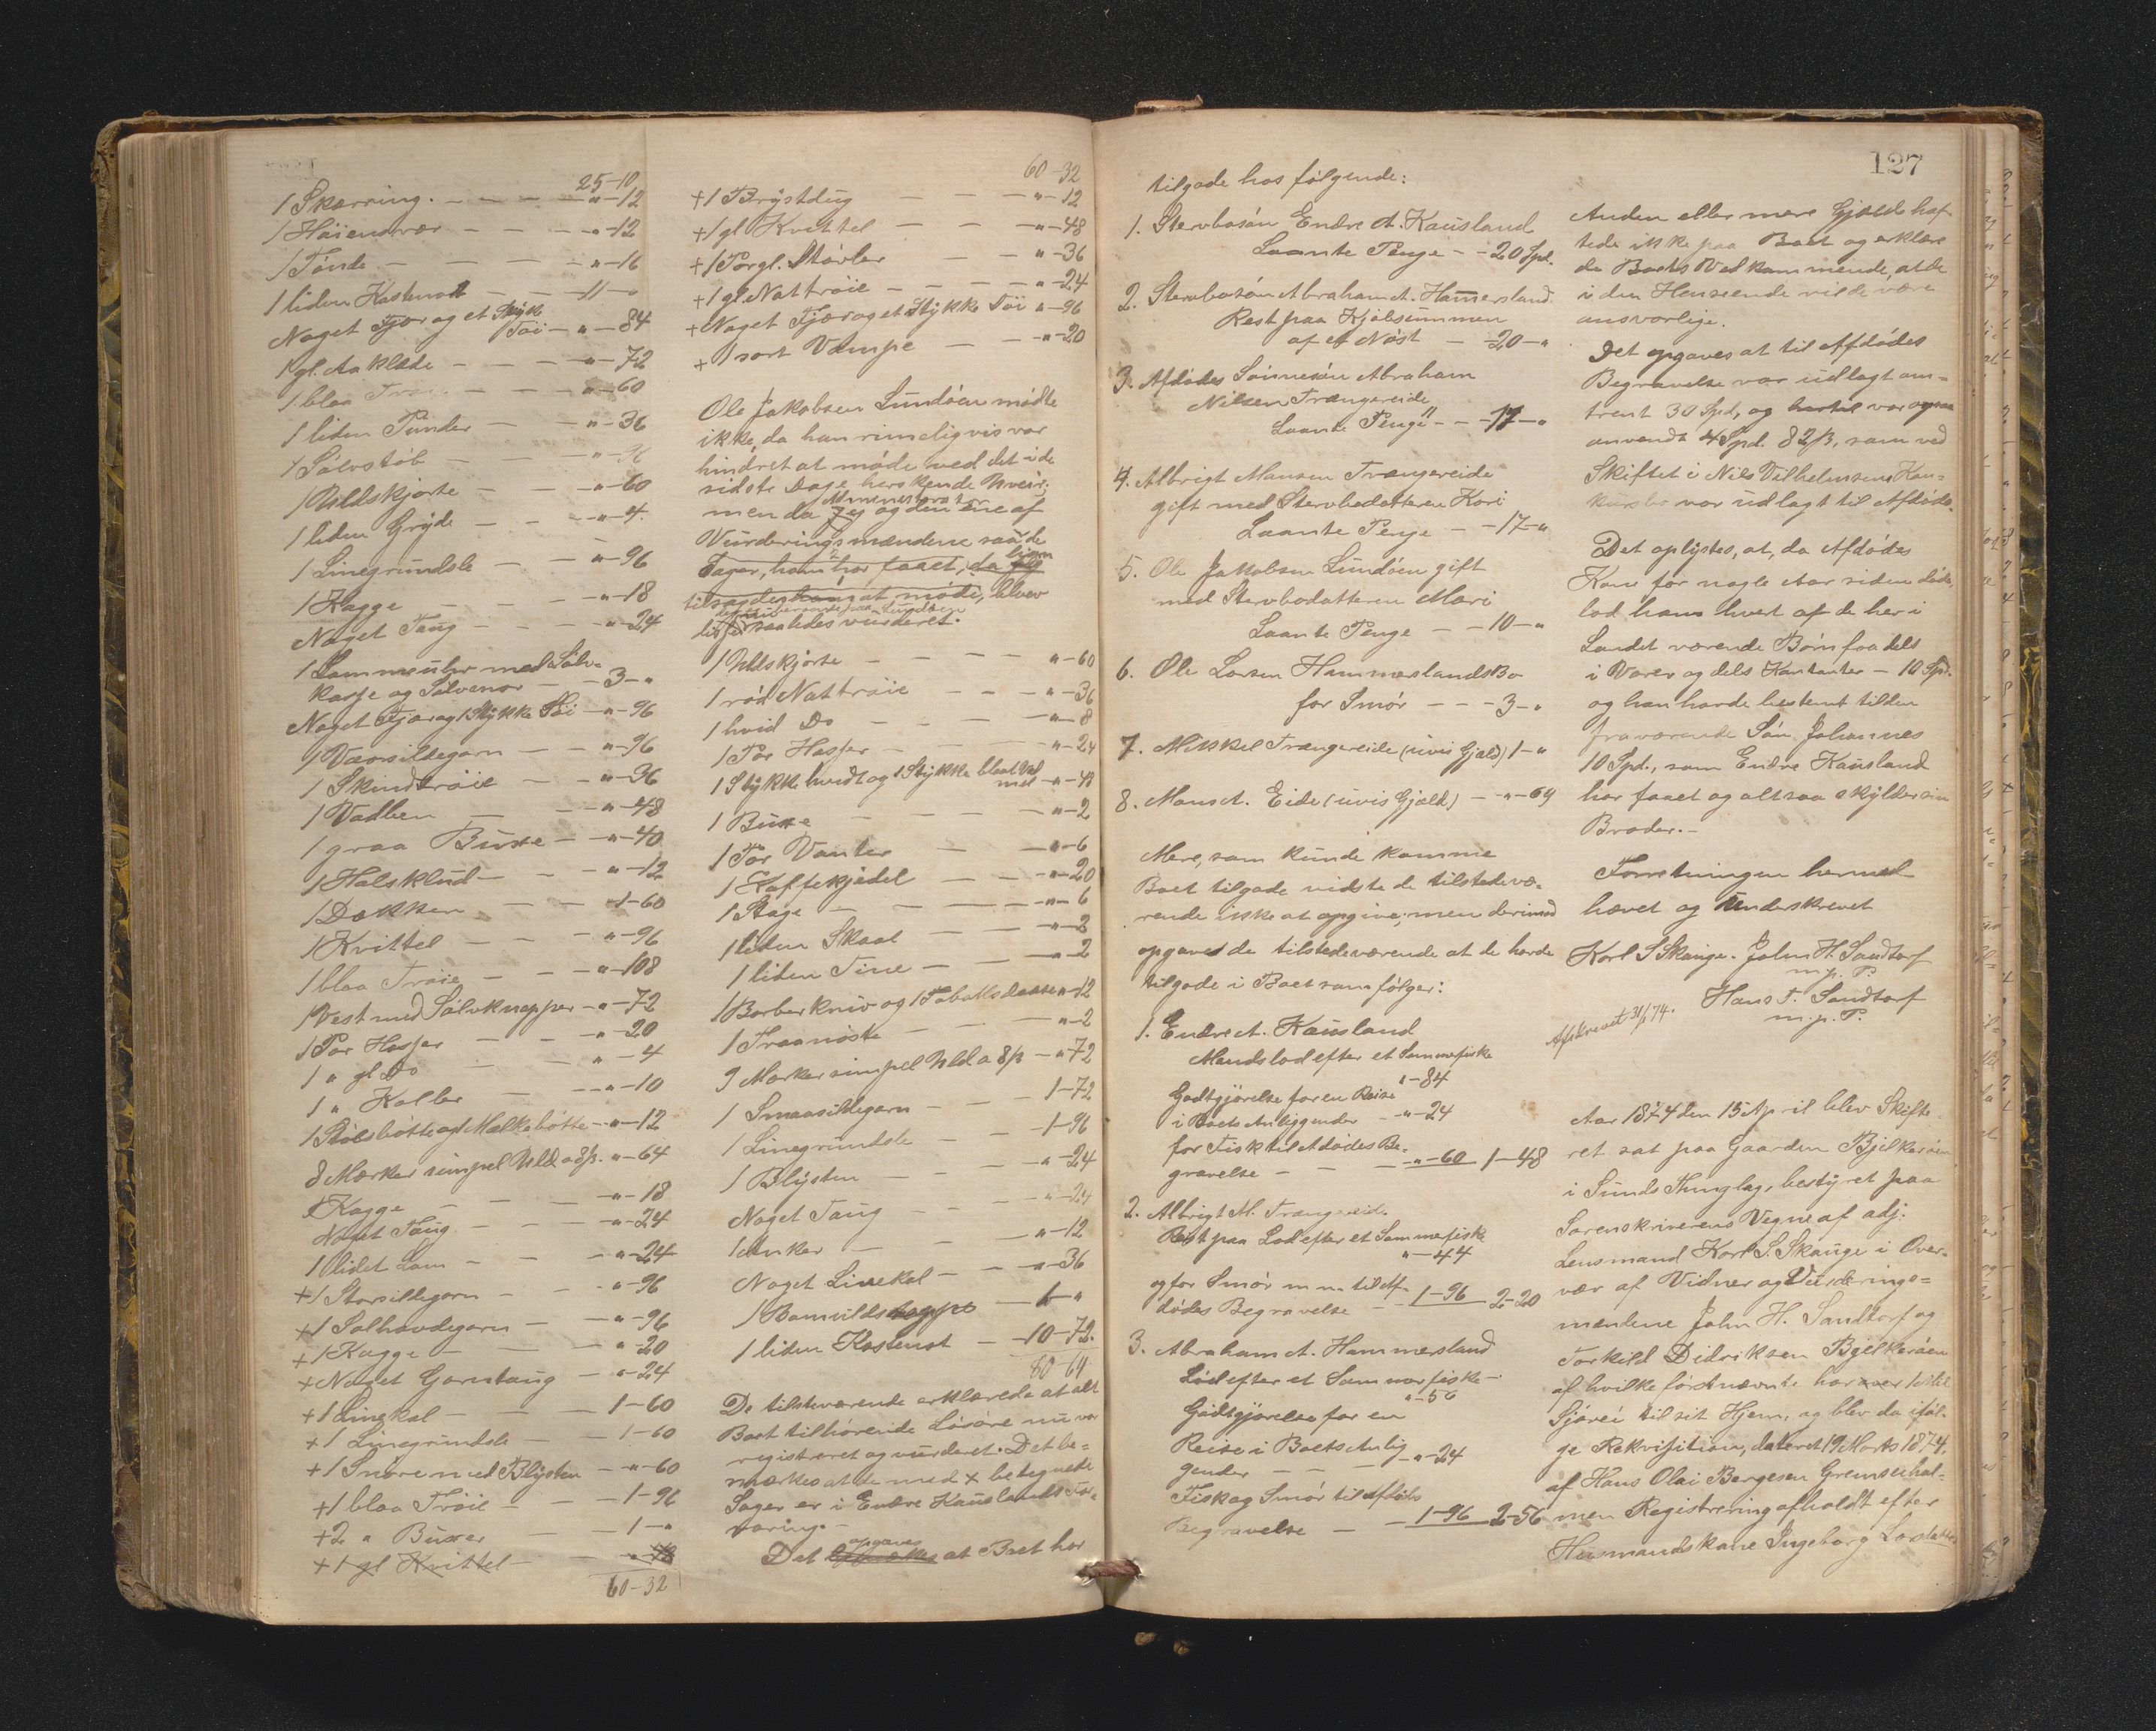 25-10
1 Skjærring. — — — "-12
1 Høiensvær — — — "-12
1 Tønde — — — "-16
1 liden Kastenot — — 11-"
Noget Fjær og et Stykke
Tøi — "-84
1 gl. Aaklæde — — "-72
1 blaa — "-60
1 liden Punder — — "-36
1 Sølvstøb — — "-36
1 Uldskjorte — — "-60
1 liden Gryde — — "-4
1 Linegrundsle — — "-96
1 Kagge — — "-18
Noget Taug — — "-24
1 Lommeuhr med Sølv-
kasse og Sølvsnor — 3-"
Noget Fjær og 1 Stykke Tøi — "-96
1 Vaarsildegarn — — "-96
1 Skindtrøie — — "-36
1 Vadben — — "-48
1 graa Buxe — "-40
1 Halsklud — — "-12
1 Dækken — — 1-60
1 Kvittel — — "-96
1 blaa Trøie — — "-108
1 Vest med Sølvknapper — "-72
1 Par Hoser — — "-20
1 " gl Do — "-4
1 " Kalber — — "-10
1 Stølsbøtte og 1 Melkebøtte — "-12
8 Marker simpel Uld a 8 s. "-64
1 Kagge — — "-18
Noget Taug — — "-24
1 lidet Lam — — "-24
+1 Storsildegarn — — "-96
+1 Salhovdegarn — — "-96
+1 Kagge — — "-20
+Noget Garntaug — "-24
+1 Linekal — — 1-60
+1 Linegrundsle — 1-60
+1 Snøre med Blysten — "-60
+1 blaa Trøie — — 1-96
+2 " Buxer — 1-"
+1 gl Kvittel — "-48
60-32
60-32
+1 Brystdug — — "-12
+1 gl Kvittel — — "-48
+1 Par gl. Støvler — — "-36
+1 gl Nattrøie — — — "-24
+Noget Fjær og et Stykke Tøi "-96
+1 sort Vampe — — "-20
Ole Jakobsen Lundøen mødte
ikke, da han rimeligvis var
hindret at møde ved det i de
sidste Dage herskende Uveir;
Administrator
men da og den ene af
Vurderingsmændene saa de
Sager, ham har faaet, da
tilsagdes ham at møde, blev
disse saaledes vurderet.
1 Uldskjorte — — — "-60
1 rød Nattrøie — — — "-36
1 hvid Do — — — "-8
1 Par Hoser — — — "-24
1 Stykke hvidt og 1 Stykke blaat Vad
mel — "-48
1 Buxe — — — "-2
1 Par Vanter — — "-6
1 Kaffekjedel — — "-20
1 Stage — — — "-6
1 liden Skaal — — "-8
1 liden Tine — — "-2
1 Barberkniv og 1 Tobaksdaase "-12
1 Traanøste — — — "-2
9 Marker simpel Uld a 8 s — "-72
1 Smaasildegarn — — 1-72
1 Linegrundsle — — 1-96
1 Blysten — — "-24
Noget Taug — — "-24
1 Anker — — "-12
Noget Linekal — — "-36
1 Bomulds — 1-"
1 liden Kastenot — 10-72.
80-64
De tilsteværende erklærede at alt
Boet tilhørende Løsøre nu var
registreret og vurderet. Det be-
mærkes at de med + betegnede
Sager er i Endre Kauslands For-
varing.—
opgaves
Det bemærkes at Boet har
127
tilgode hos følgende:
1. Stervbosøn Endre A. Kausland
Laante Penge — 20 Spd.
2. Stervbosøn Abraham A. Hammersland
Rest paa Kjøbsummen
af et Nøst — 20-"
3. Afdødes Sønnesøn Abraham
Nilsen Trængereide
Laante Penge — 17-"
4. Albrigt Monsen Trængereide
gift med Stervbodatteren Kari
Laante Penge — 17-"
5. Ole Jakobsen Lundøen gift
med Stervbodatteren Mari
Laante Penge — 10-"
6. Ole Larsen Hammerslands Bo
for Smør — — 3-"
7. Mikkel Trængereide (uvis Gjæld) 1-"
8. Mons A. Eide (uvis Gjæld) — "-64
Mere, som kunde komme
Boet tilgode vidste de tilstedevæ-
rende ikke at opgive; men derimod
opgaves de tilstedeværende at de havde
tilgode i Boet som følger:
1. Endre A. Kausland
Mandslod efter et Sommerfiske
"-84
Godtgjørelse for en Reise
i Boets Anliggender — "-24
for Fisk til Afdødes Be-
gravelse — — "-60 1-48
2. Albrigt M. Trængereide
Rest paa Lod efter et Sommerfiske
"-44
og for Smør m.m. til Af-
dødes Begravelse — 1-96 2-20
3. Abraham A. Hammersland
Lod efter et Sommerfiske —
"-56
Godtgjørelse for en
Reise i Boets Anlig
gender — — "-24
Fisk og Smør til Afdødes
Begravelse — — 1-96 2-56
Anden eller mere Gjæld hef-
tede ikke paa Boet og erklære
de Boets Vedkommende, at de
i den Henseende vilde være
ansvarlige.
Det opgaves at til Afdødes
Begravelse var udlagt om-
trent 30 Spd, og hertil var ogsaa
anvendt 4 Spd. 82 s, som ved
Skiftet i Nils Vilhelmsens Kon-
kursbo var udlagt til Afdøde.
Det oplystes, at, da Afdødes
Kone for nogle Aar siden døde,
lod hans hvert af de her i
Landet værende Børn faa dels
i Varer og dels Kontanter — 10 Spd.
og han havde bestemt til den
fraværende Søn Johannes
10 Spd., som Endre Kausland
har faaet og altsaa skylder sin
Broder.—
Forretningen hermed
hævet og Underskrevet
Karl S Skauge. John H. Sandtorf
m. p. P.
Hans T. Sandtorf
m. p. P.
Afskrevet 31/5 74.
Aar 1874 den 15 April blev Skifte
ret sat paa Gaarden Bjelkerøen
i Sunds Thinglag, bestyret paa
Sorenskriverens Vegne af adj.
Lensmand Karl S. Skauge i Over-
vær af Vidner og Vurderings-
mændene John H. Sandtorf og
Torkild Didriksen Bjelkerøen
af hvilke førstnævnte har over 1 Mil
Sjøvei til sit Hjem, og blev da iføl-
ge Rekvisition, dateret 19 Marts 1874,
af Hans Olai Børgesen Gremserhol-
men Registrering afholdt efter
Husmandskone Ingeborg Larsdatter